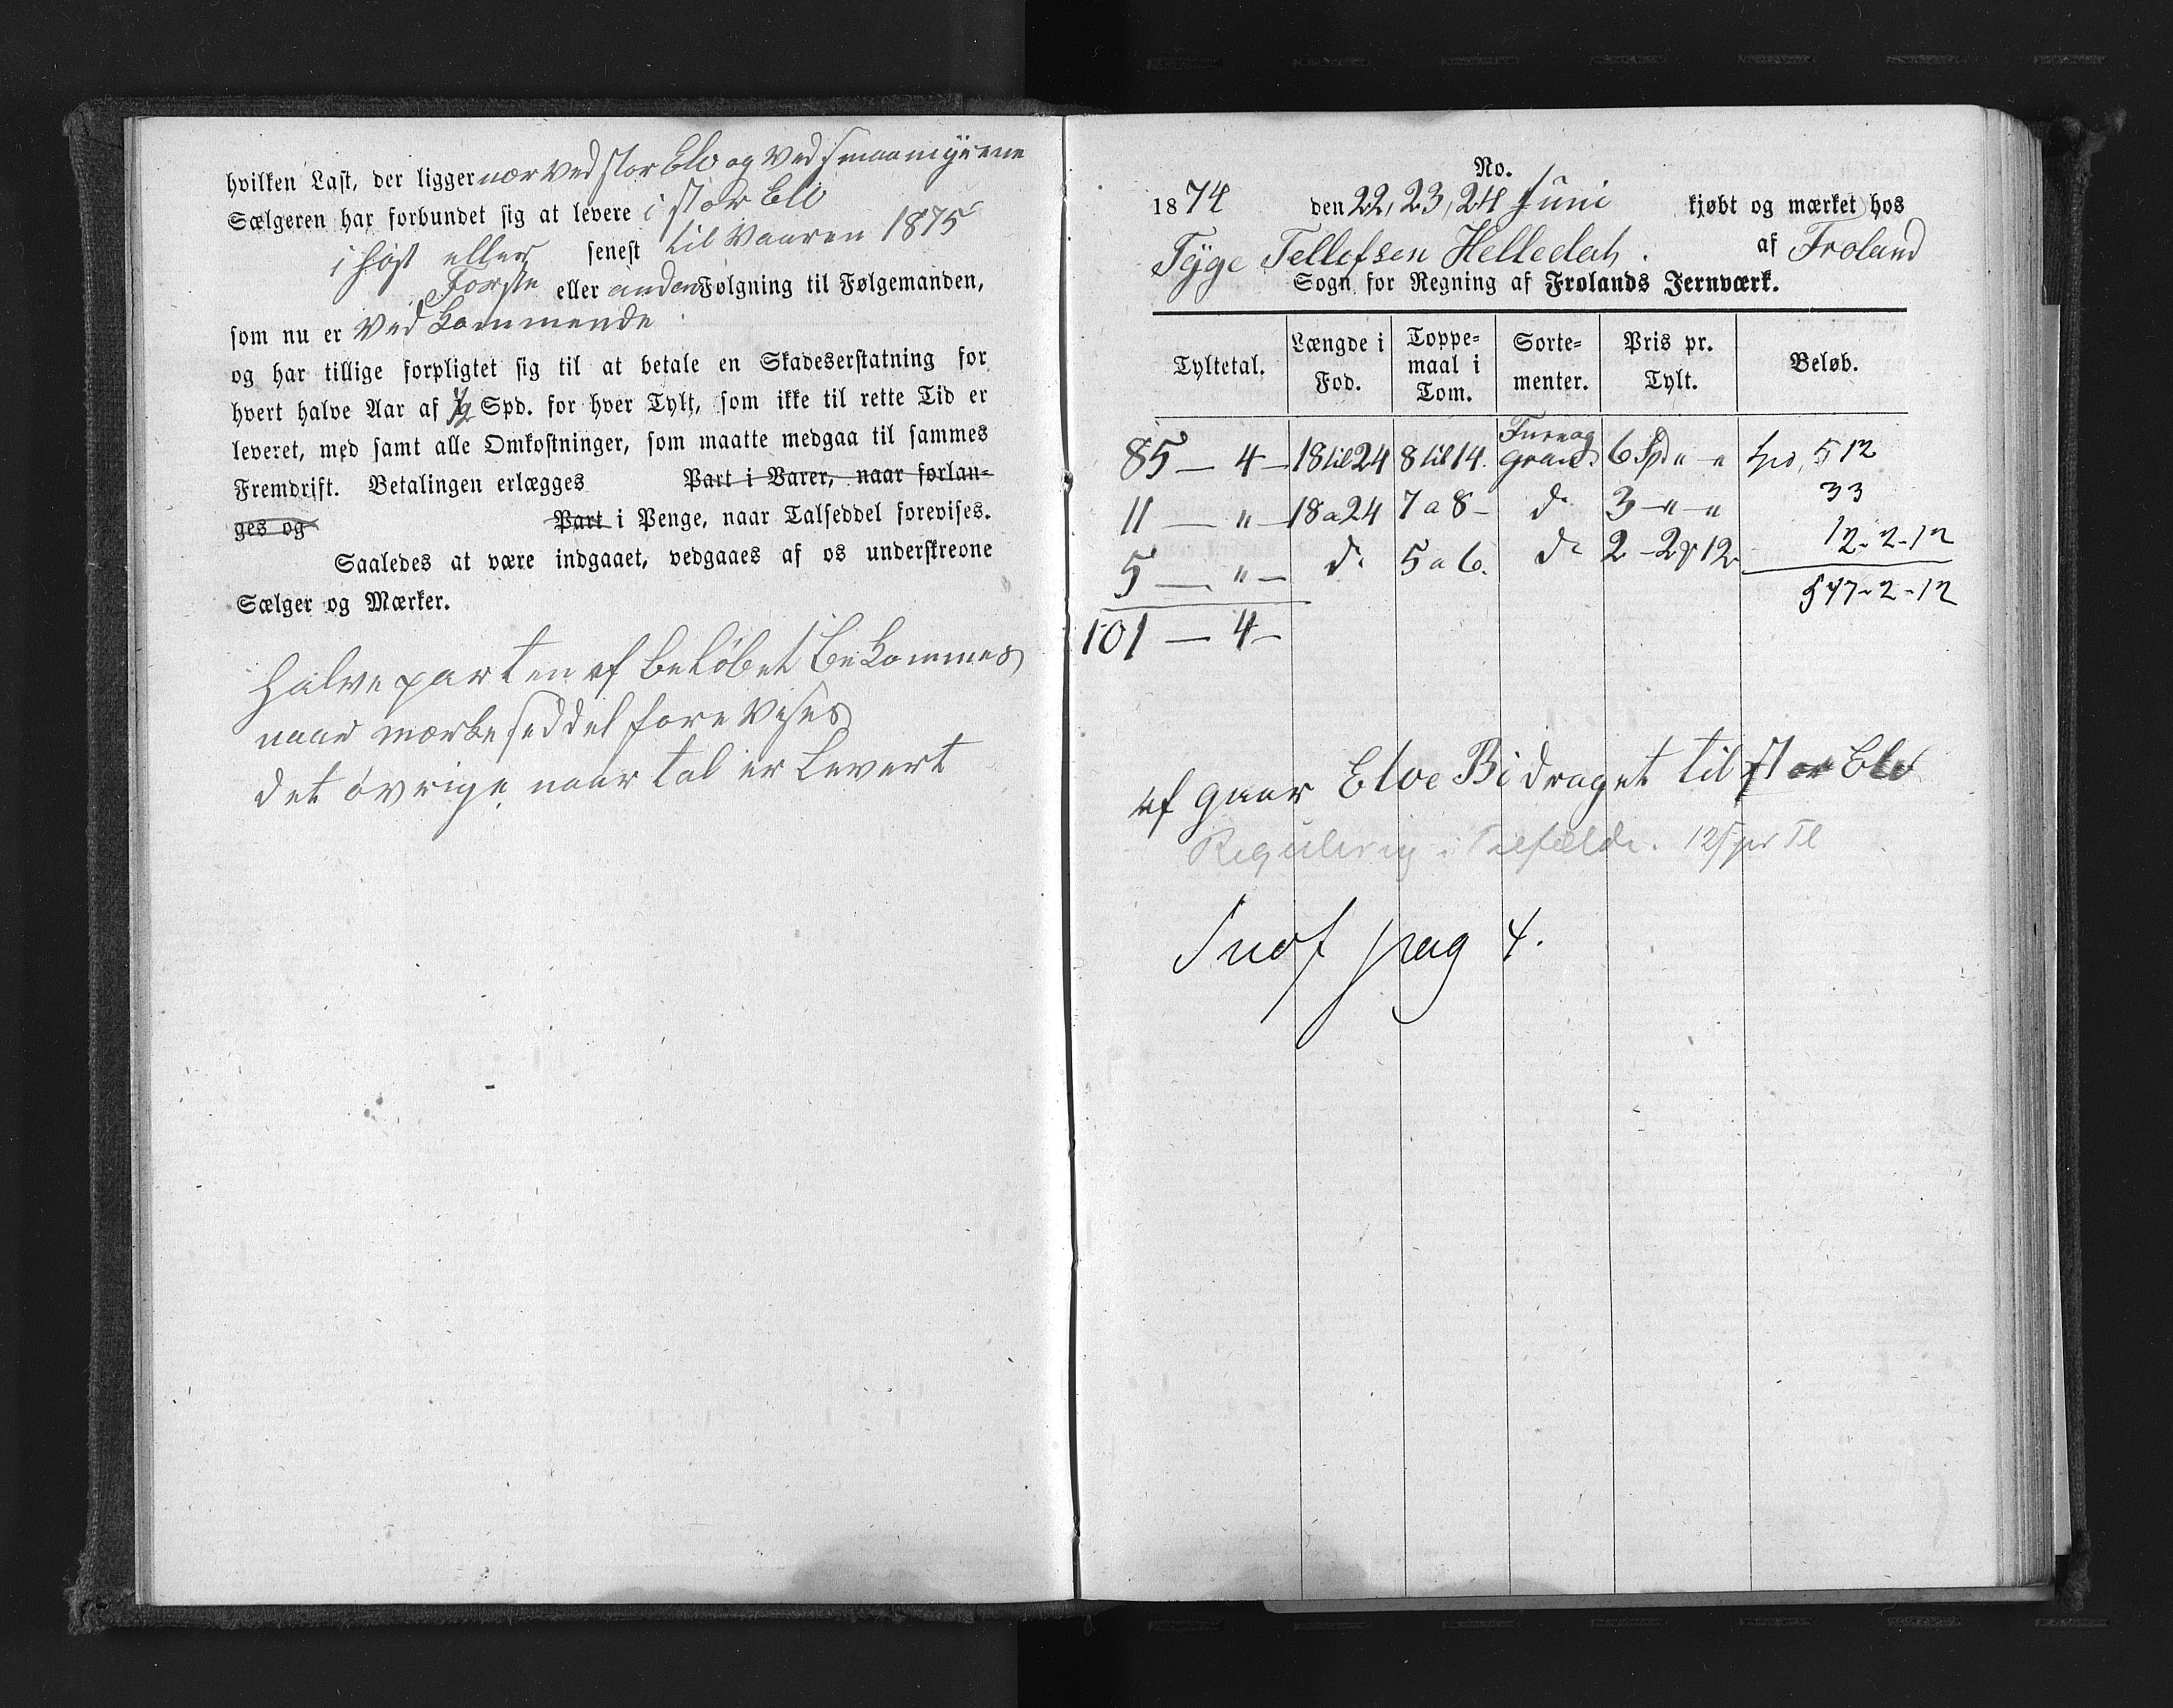 hvilken Last, der ligger nær ved stor Elv og ved smaamyrene
Sælgeren har forbundet sig at levere i stor Elv
i høst eller senest til Vaaren 1875
Første eller anden Følgning til Følgemanden,
som nu er Vedkommende
og har tillige forpligtet sig til at betale en Skadeserstatning for
hvert halve Aar af 1/2 Spd. for hver Tylt, som ikke til rette Tid er
leveret, med samt alle Omkostninger, som maatte medgaa til sammes
Fremdrift. Betalingen erlægges Part i Varer, naar forlan-
ges og Part i Penge, naar Talseddel forevises.
Saaledes at være indgaaet, vedgaaes af os underskreone
Sælger og Mærker.
Halveparten af beløbet bekommes
naar mærkeseddel forevises
det øvrige naar tal er Levert
No.
1874 den 22, 23, 24 Juni kjøbt og mærket hos
Tyge Tellefsen Helledal. af Froland
Sogn for Regning af Frolands Jernværk.
Tyltetal. Længde i Fod. Toppe-maal i Tom. Sorte-menter. Pris pr. Tylt. Beløb.
85 — 4 — 18 til 24 8 til 14. Furu og gran 6 Spd " — " Spd, 512
11 — " — 18 a 24 7 a 8 — do 3 — " — " 33
5 — " — do 5 a 6. do 2 - 2 ß 12 12 - 2 - 12
101 — 4 — 547 - 2 - 12
af gaar Elve Bidraget til stor Elv
12 ß pr Tl
Indf pag 4.